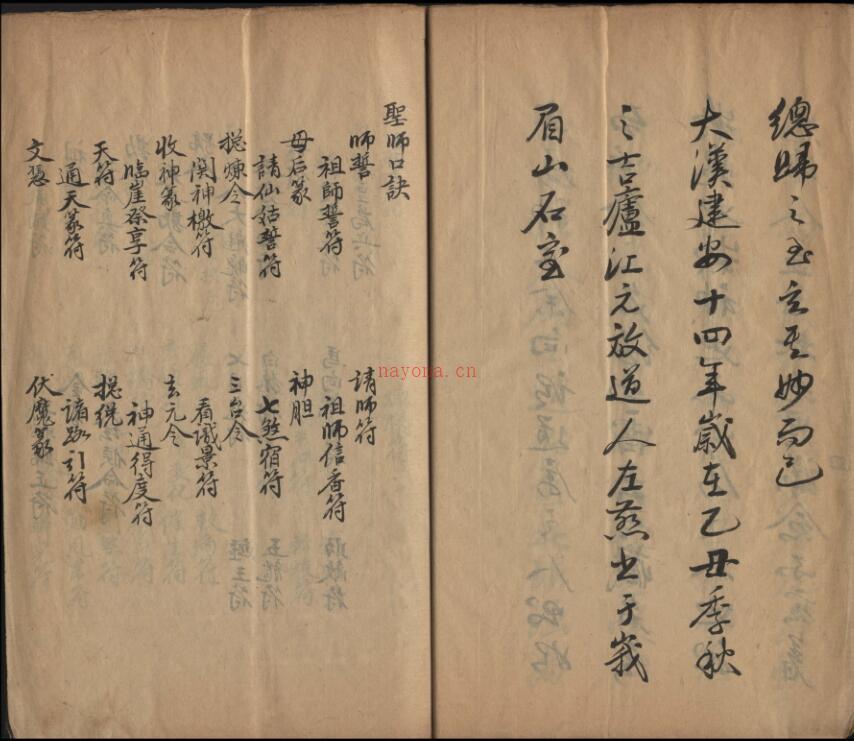 總歸之玄之妙而已
大漢建安十四年歲在乙丑季秋
之吉廬江元放道人左慈书于峩
眉山石室
聖師口訣
師誓
請師符
祖師誓符
祖師信香符
母后篆
神胆
請仙姑誓符
七煞宿符
捴煉令
三台令
関神檄符
看識景符
收神篆
玄元令
臨崖祭享符
神通得度符
天符
捴統
通天篆符
諸路引符
文慧
伏魔篆
nayona.cn